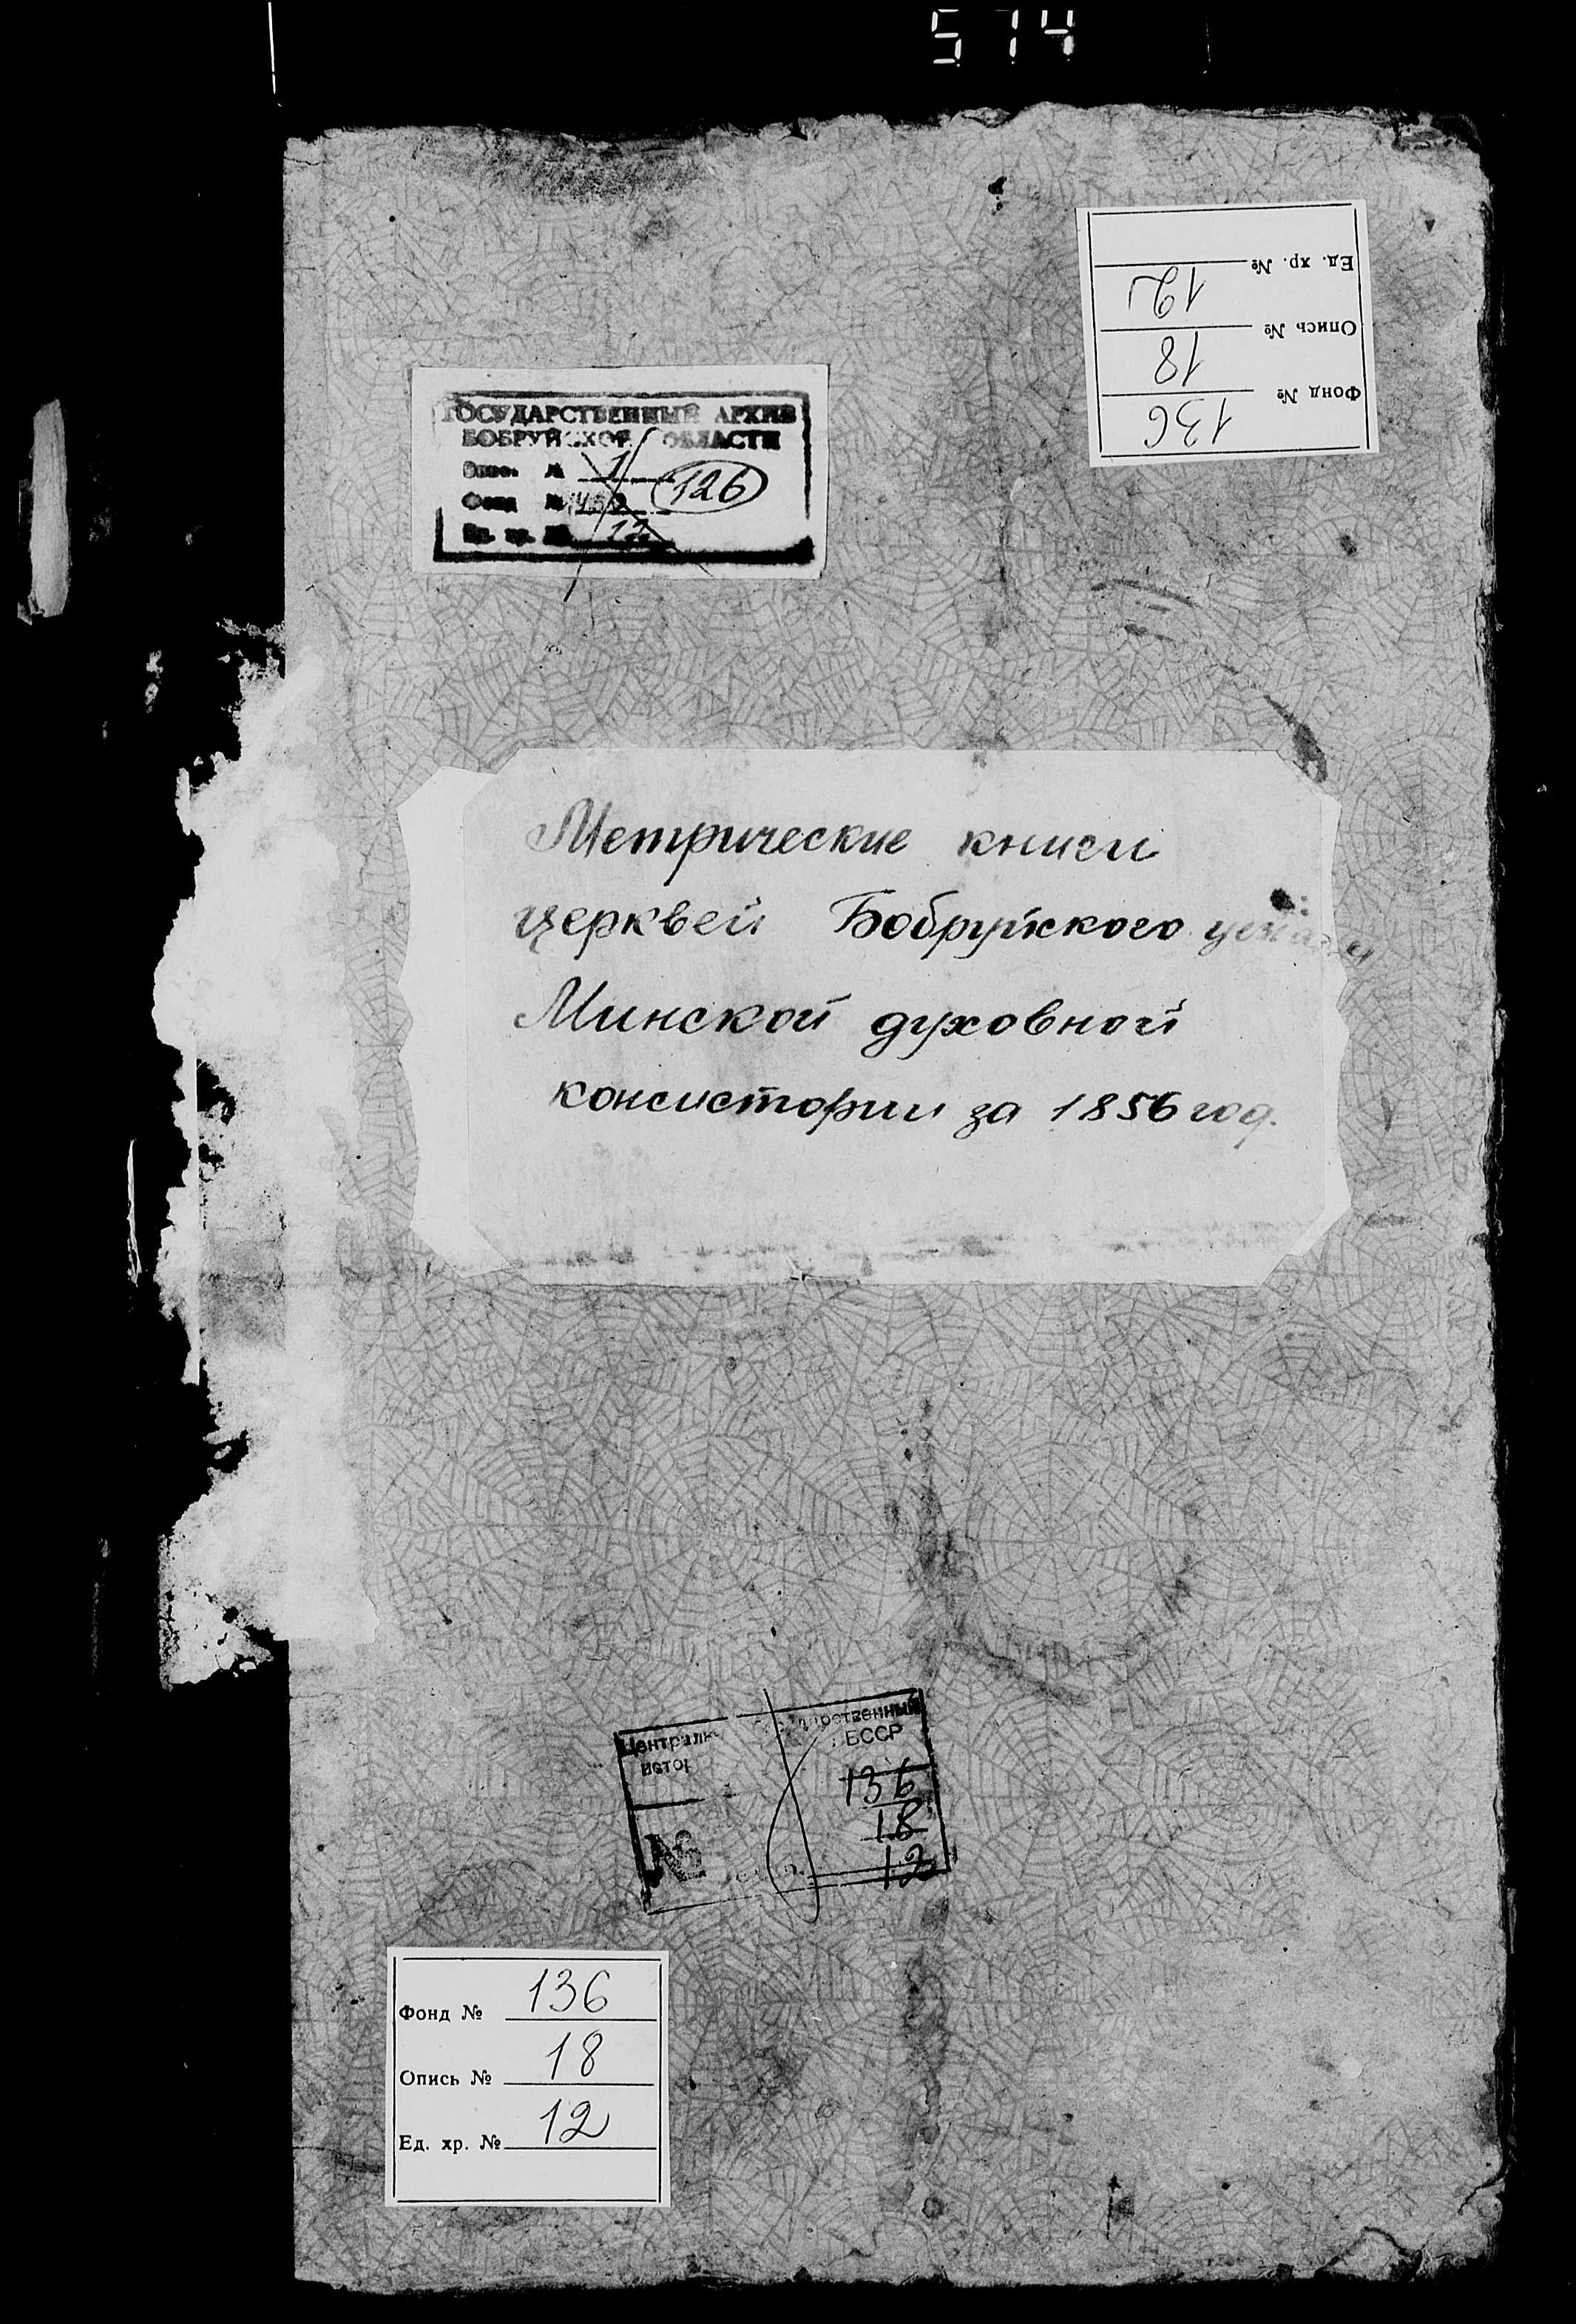 574
Ед. хр. № 12
Опись № 18
Фонд № 136
ГОСУДАРСТВЕННЫЙ АРХИВ
БОБРУЙСКОЙ ОБЛАСТИ
Опись № 1
Фонд № 126
Ед. хр. № 12
Метрические книги
церквей Бобруйского уезда
Минской духовной
консистории за 1856 год.
Централь дарственный
истор БССР
136
18
№ 12
Фонд № 136
Опись № 18
Ед. хр. № 12